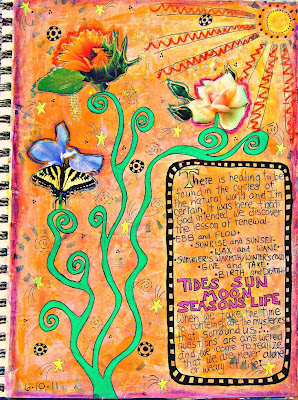 There is healing to be
found in the cycles of
the natural world and I'm
certain it was here that
God intended we discover
the lesson of renewal.
EBB and FLOW.
• SUNRISE and SUNSET •
• WAX and WANE •
SUMMER'S WARMTH, WINTER'S COLD
• GIVE and TAKE •
• BIRTH and DEATH •
TIDES SUN
MOON
SEASONS LIFE
When we take the time
to contemplate the mysteries
that surround us...
questions are answered
and we come to realize
that we are never alone
or weary of life!
6-10-11